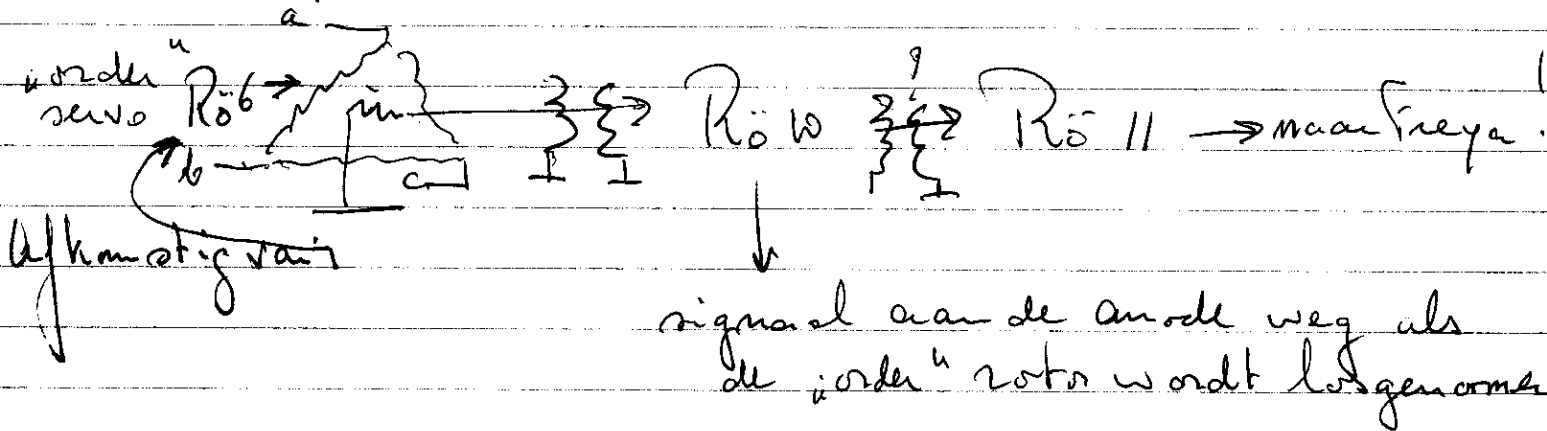 a
„order“
servo Rö6 → Rö 10 ? Rö 11 → naar Freya!
b
c
Afkomstig van
signaal aan de anode weg als
de „order“ rotor wordt losgenomen